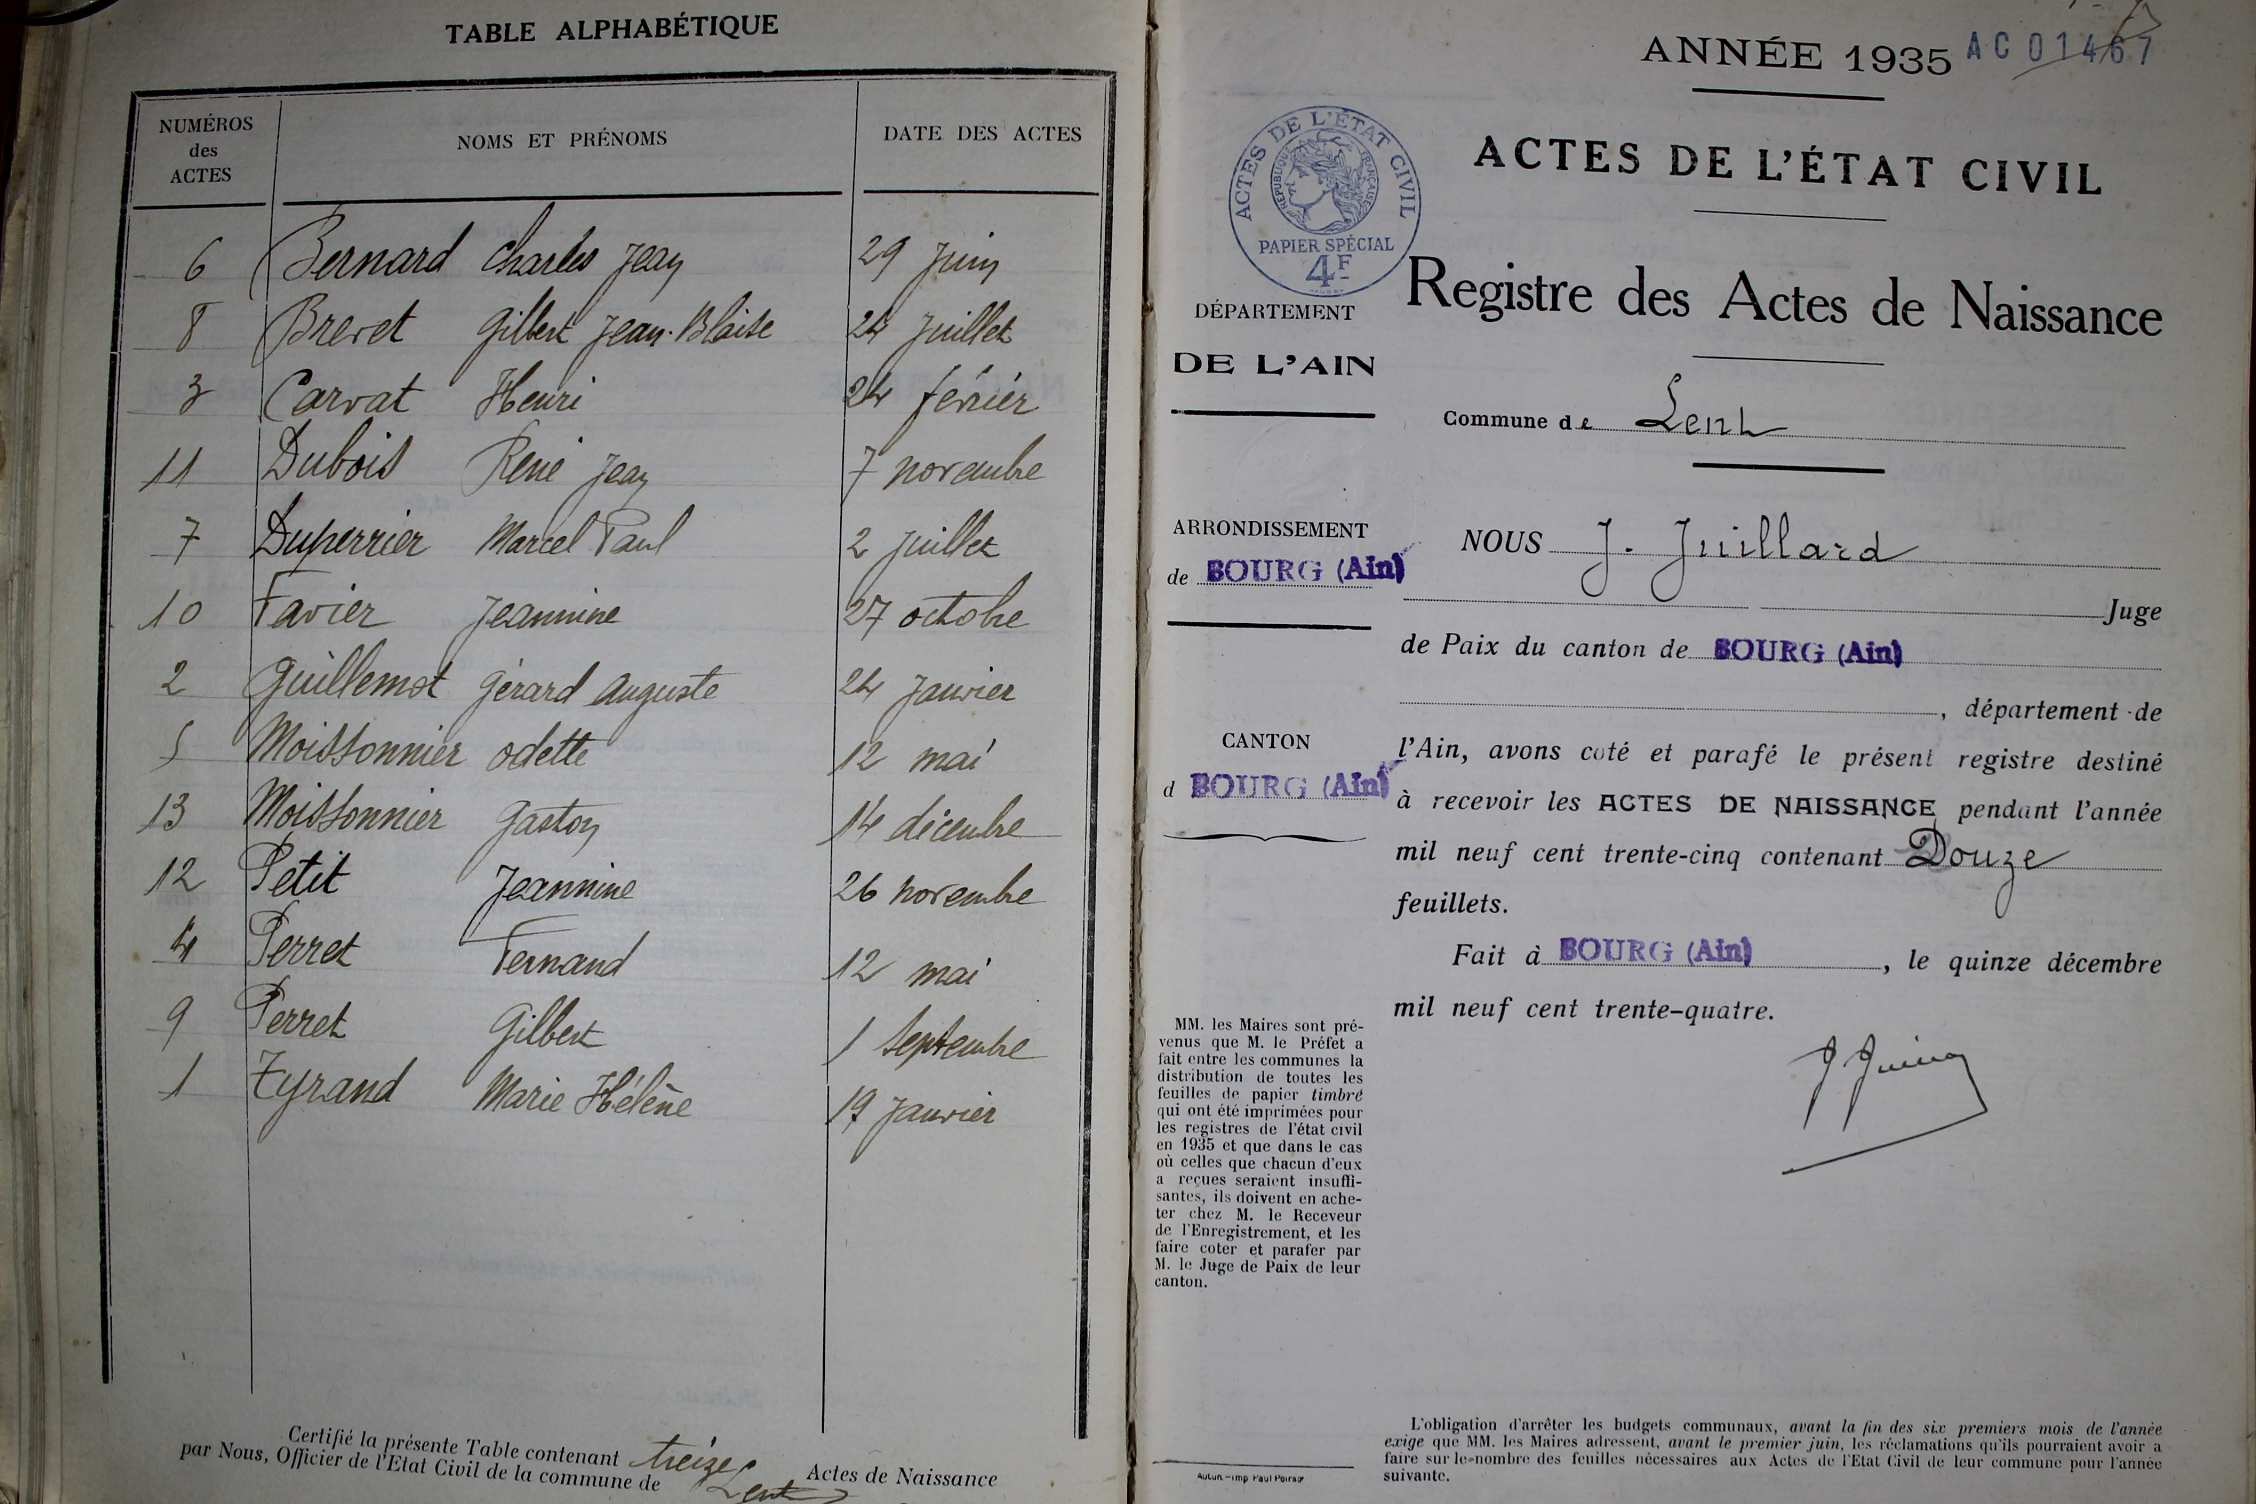 TABLE ALPHABÉTIQUE
NUMÉROS
des
ACTES
NOMS ET PRÉNOMS
DATE DES ACTES
6 Bernard Charles Jean 29 Juin
8 Brevet Gilbert Jean-Blaise 24 Juillet
3 Carvat Henri 24 février
11 Dubois René Jean 7 novembre
7 Duperrier Marcel Paul 2 Juillet
10 Favier Jeannine 27 octobre
2 Guillemot Gérard Auguste 24 Janvier
5 Moissonnier Odette 12 mai
13 Moissonnier Gaston 14 décembre
12 Petit Jeannine 26 novembre
4 Perret Fernand 12 mai
9 Perret Gilbert 1 Septembre
1 Tyrand Marie Hélène 19 Janvier
Certifié la présente Table contenant treize Actes de Naissance
par Nous, Officier de l'Etat Civil de la commune de Lent
ANNÉE 1935 AC 01467
ACTES DE L'ÉTAT CIVIL
RÉPUBLIQUE FRANÇAISE
PAPIER SPÉCIAL
4F
ACTES DE L'ÉTAT CIVIL
Registre des Actes de Naissance
DÉPARTEMENT
DE L'AIN
Commune de Lent
ARRONDISSEMENT
de BOURG (Ain)
CANTON
d BOURG (Ain)
NOUS J. Juillard
Juge
de Paix du canton de BOURG (Ain)
, département de
l'Ain, avons coté et parafé le présent registre destiné
à recevoir les ACTES DE NAISSANCE pendant l'année
mil neuf cent trente-cinq contenant Douze
feuillets.
Fait à BOURG (Ain), le quinze décembre
mil neuf cent trente-quatre.
MM. les Maires sont pré-
venus que M. le Préfet a
fait entre les communes la
distribution de toutes les
feuilles de papier timbré
qui ont été imprimées pour
les registres de l'état civil
en 1935 et que dans le cas
où celles que chacun d'eux
a reçues seraient insuffi-
santes, ils doivent en ache-
ter chez M. le Receveur
de l'Enregistrement, et les
faire coter et parafer par
M. le Juge de Paix de leur
canton.
Autun.-Imp Paul Poirson
L'obligation d'arrêter les budgets communaux, avant la fin des six premiers mois de l'année
exige que MM. les Maires adressent, avant le premier juin, les réclamations qu'ils pourraient avoir a
faire sur le nombre des feuilles nécessaires aux Actes de l'Etat Civil de leur commune pour l'année
suivante.